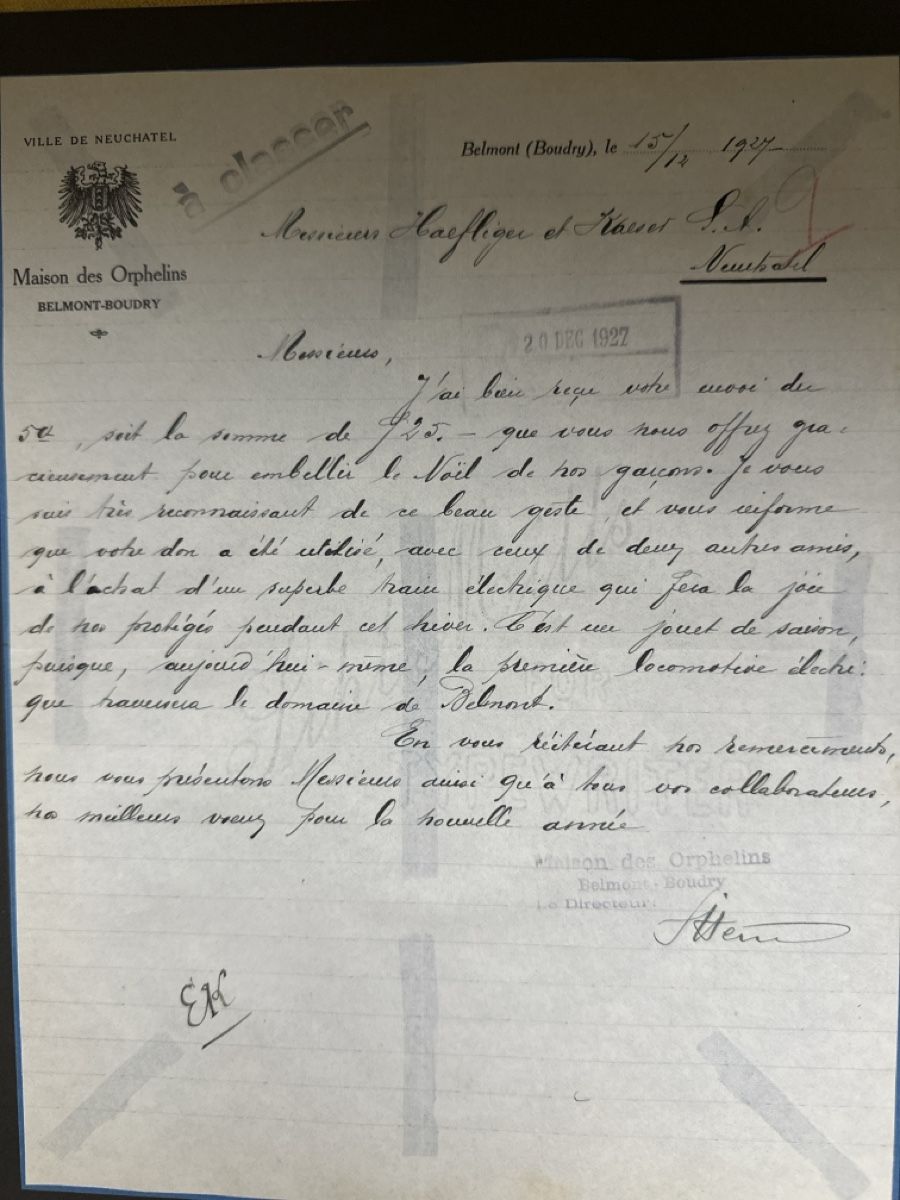 VILLE DE NEUCHATEL
à classer
Belmont (Boudry), le 15/12 1927
Messieurs Haefliger et Kaeser S. A.
Neuchatel
Maison des Orphelins
BELMONT-BOUDRY
20 DEC 1927
Messieurs,
J'ai bien reçu votre envoi du
5ct, soit la somme de f 25.- que vous nous offrez gra-
cieusement pour embellir le Noël de nos garçons. Je vous
suis très reconnaissant de ce beau geste, et vous informe
que votre don a été utilisé, avec ceux de deux autres amis,
à l'achat d'un superbe train électrique qui fera la joie
de nos protégés pendant cet hiver. C'est un jouet de saison,
puisque, aujourd'hui-même, la première locomotive électri-
que traversera le domaine de Belmont.
En vous réitérant nos remerciements,
nous vous présentons Messieurs ainsi qu'à tous vos collaborateurs,
nos meilleurs voeux pour la nouvelle année
Maison des Orphelins
Belmont-Boudry
Le Directeur:
EK